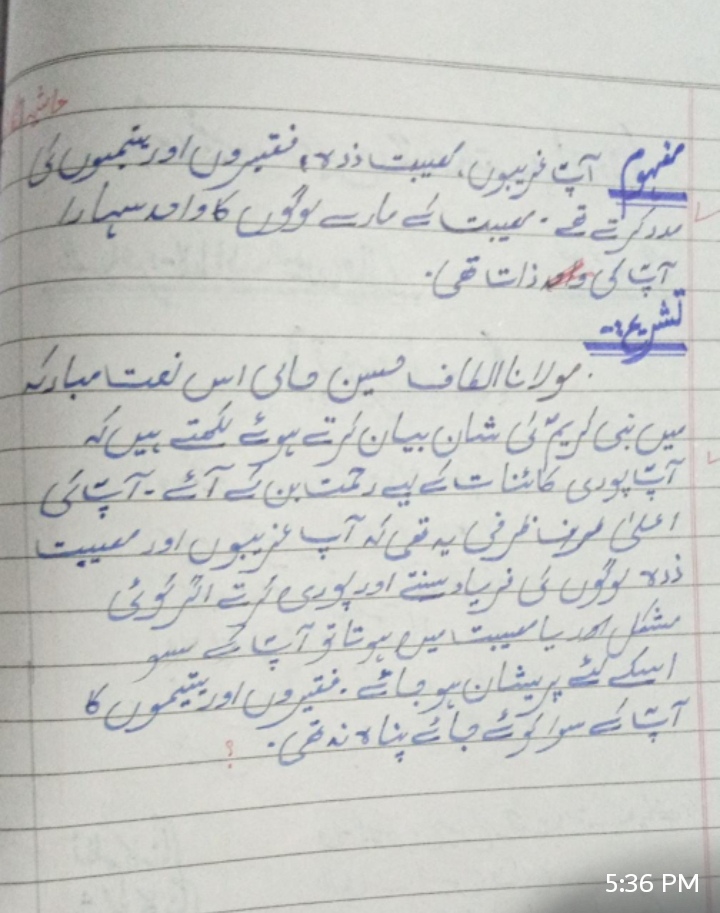 مفہوم آپؐ غریبوں، مصیبت ذدہ، فقیروں اور یتیموں کی
مدد کرتے تھے۔ مصیبت کے مارے لوگوں کا واحد سہارا
آپؐ کی ذات تھی۔
تشریح:۔
مولانا الطاف حسین حالی اس نعت مبارکہ
میں نبی کریمؐ کی شان بیان کرتے ہوئے لکھتے ہیں کہ
آپؐ پوری کائنات کے لیے رحمت بن کے آئے ۔ آپؐ کی
اعلیٰ ظرفی یہ تھی کہ آپ غریبوں اور مصیبت
ذدہ لوگوں کی فریاد سنتے اور پوری کرتے اگر کوئی
مشکل یا مصیبت میں ہوتا تو آپؐ کے
اسکے لئے پریشان ہو جاتے ۔ فقیروں اور یتیموں کا
آپؐ کے سوا کوئے جائے پناہ نہ تھی۔ ?
5:36 PM